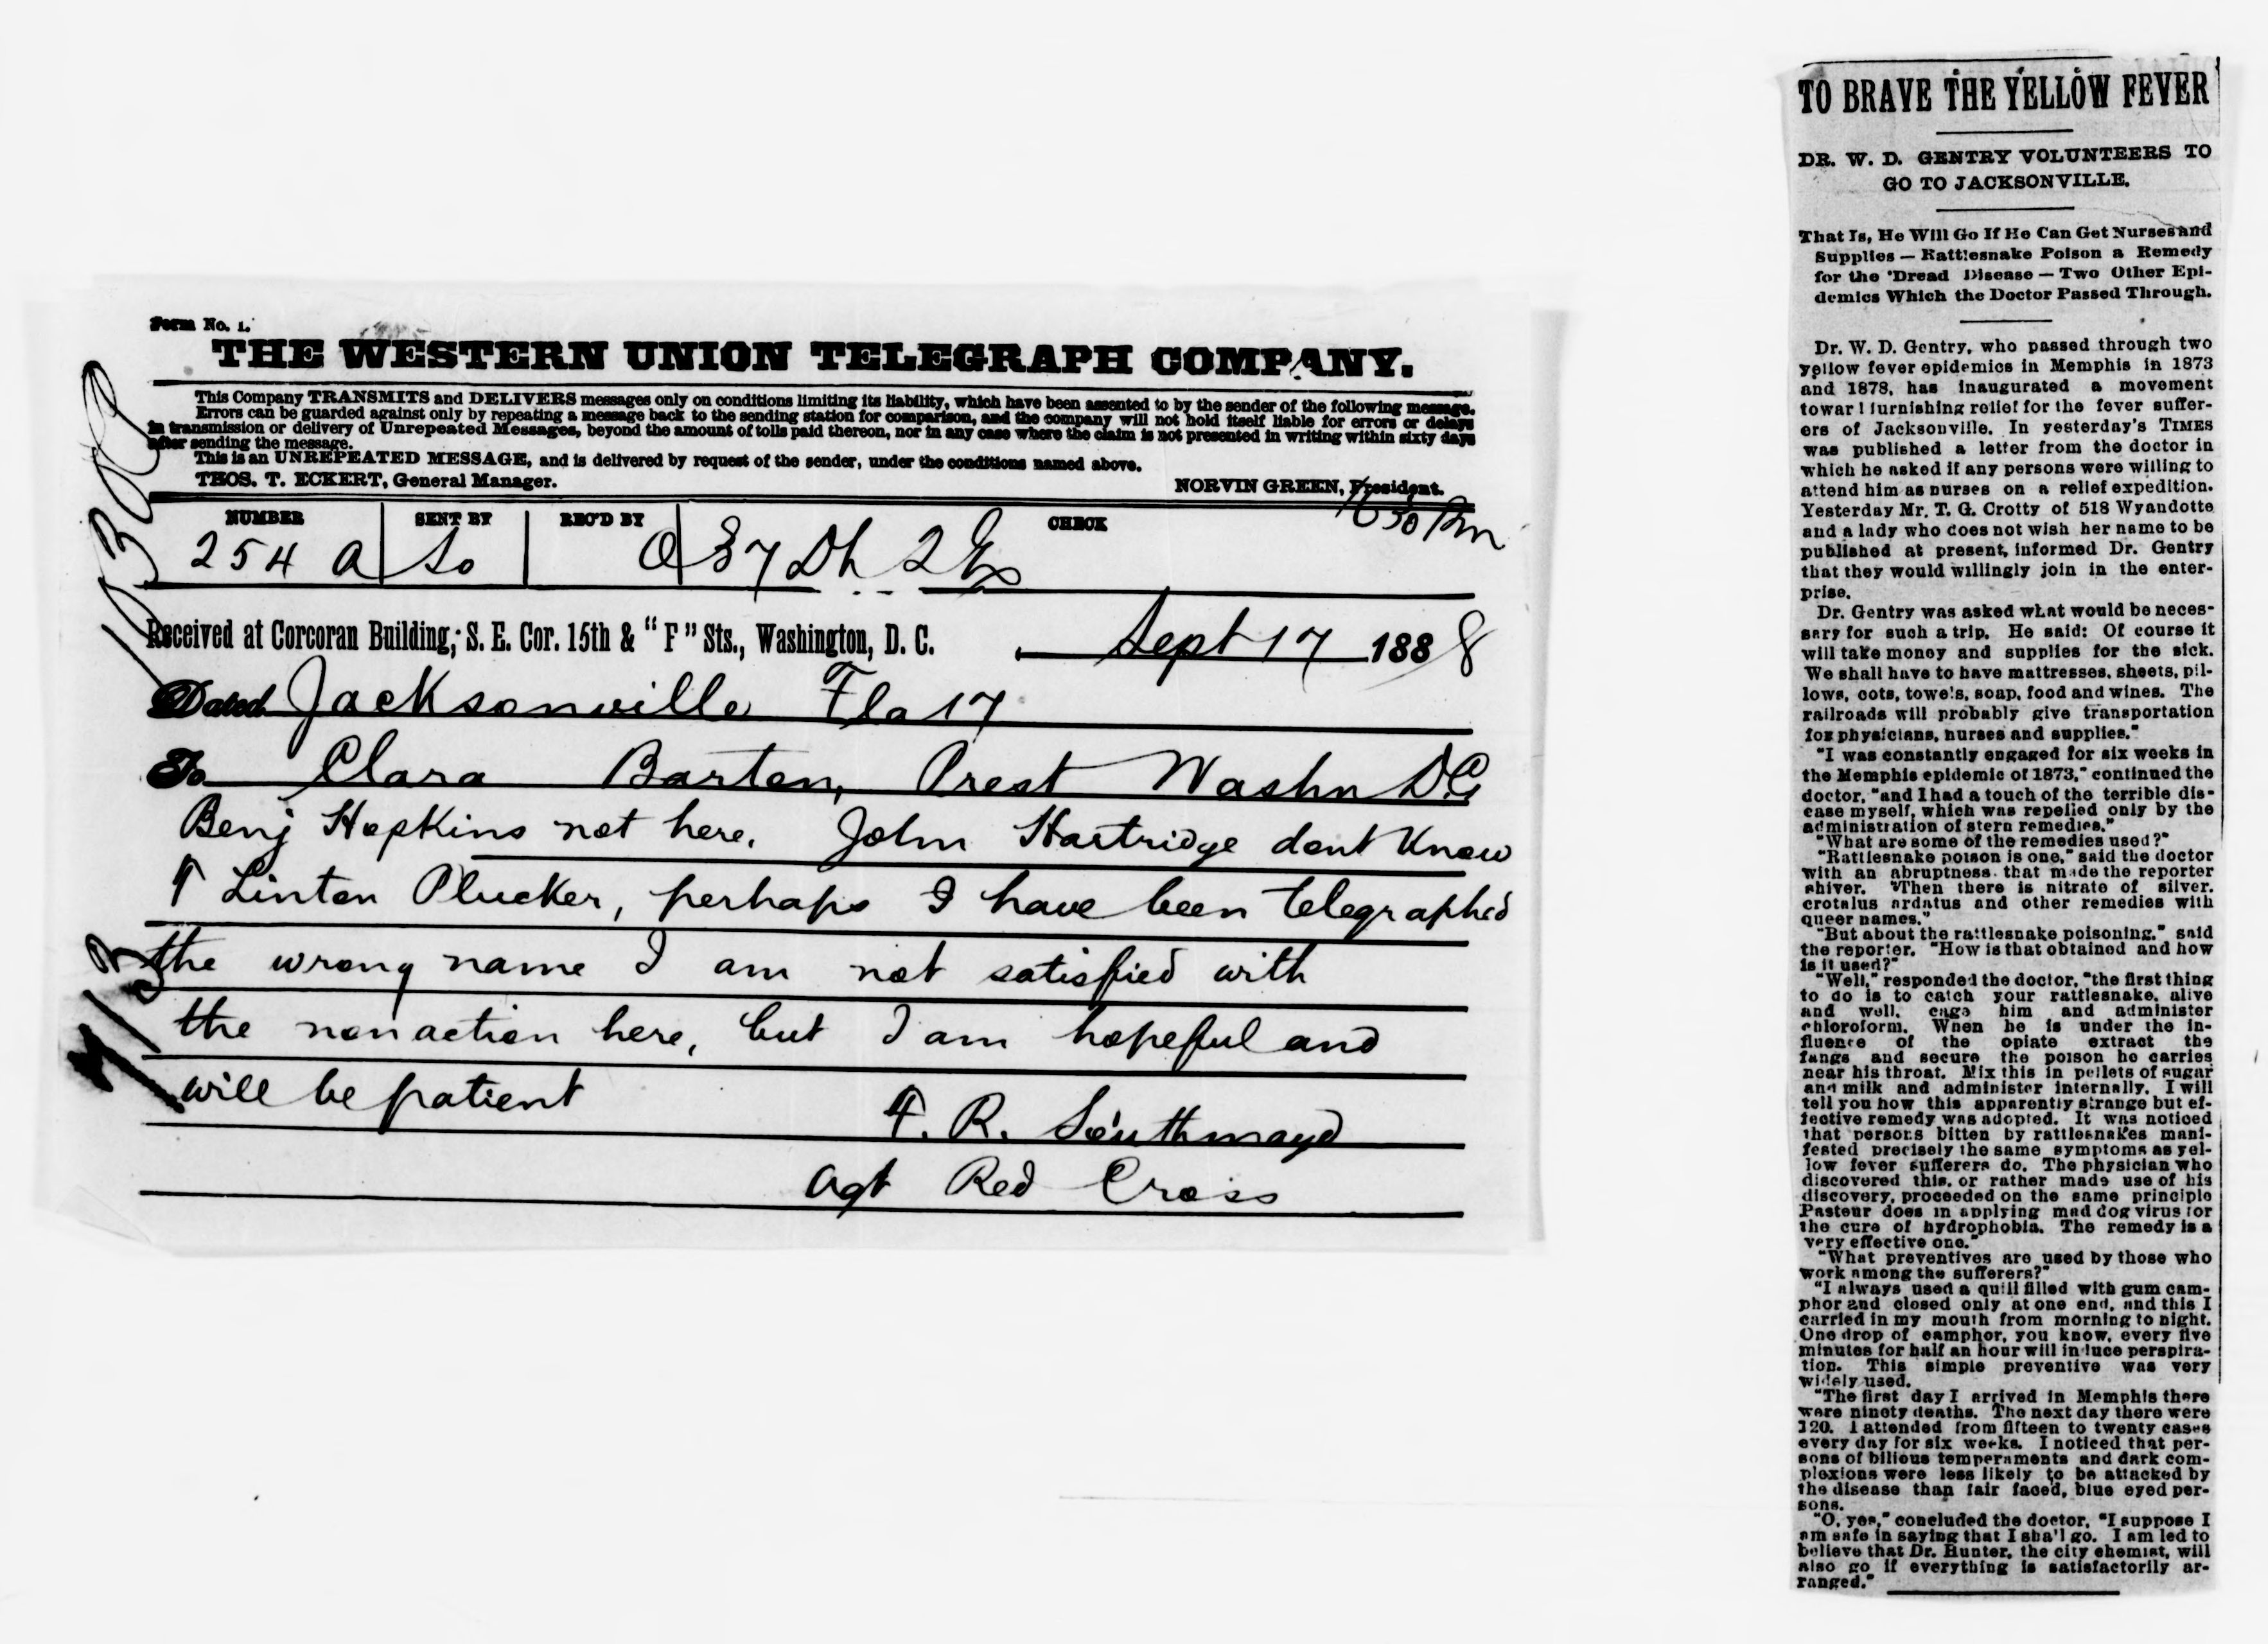 Form No. 1.
THE WESTERN UNION TELEGRAPH COMPANY.
This Company TRANSMITS and DELIVERS messages only on conditions limiting its liability, which have been assented to by the sender of the following message.
Errors can be guarded against only by repeating a message back to the sending station for comparison, and the company will not hold itself liable for errors or delays
in transmission or delivery of Unrepeated Messages, beyond the amount of tolls paid thereon, nor in any case where the claim is not presented in writing within sixty days
after sending the message.
This is an UNREPEATED MESSAGE, and is delivered by request of the sender, under the conditions named above.
THOS. T. ECKERT, General Manager. NORVIN GREEN, President.
NUMBER SENT BY REC'D BY CHECK
254 a So 37 Dh
Received at Corcoran Building, S. E. Cor. 15th & "F" Sts., Washington, D. C. Sept 17 1888
Dated Jacksonville Fla 17
To Clara Barton, Prest Washn DC
Benj Hopkins not here. John Hartridge dont Know
Linton Plucker, perhaps I have been telegraphed
the wrong name I am not satisfied with
the nonaction here, but I am hopeful and
will be patient
F. R. Southmayd
Agt Red Cross
TO BRAVE THE YELLOW FEVER
DR. W. D. GENTRY VOLUNTEERS TO
GO TO JACKSONVILLE.
That Is, He Will Go If He Can Get Nurses and
Supplies — Rattlesnake Poison a Remedy
for the Dread Disease — Two Other Epi-
demics Which the Doctor Passed Through.
Dr. W. D. Gentry, who passed through two
yellow fever epidemics in Memphis in 1873
and 1878, has inaugurated a movement
towarl furnishing relief for the fever suffer-
ers of Jacksonville. In yesterday's TIMES
was published a letter from the doctor in
which he asked if any persons were willing to
attend him as nurses on a relief expedition.
Yesterday Mr. T. G. Crotty of 518 Wyandotte
and a lady who does not wish her name to be
published at present, informed Dr. Gentry
that they would willingly join in the enter-
prise.
Dr. Gentry was asked what would be neces-
sary for such a trip. He said: Of course it
will take money and supplies for the sick.
We shall have to have mattresses, sheets, pil-
lows, cots, towels, soap, food and wines. The
railroads will probably give transportation
for physicians, nurses and supplies."
"I was constantly engaged for six weeks in
the Memphis epidemic of 1873," continued the
doctor, "and I had a touch of the terrible dis-
ease myself, which was repelled only by the
administration of stern remedies."
"What are some of the remedies used?"
"Rattlesnake poison is one," said the doctor
with an abruptness that made the reporter
shiver. "Then there is nitrate of silver,
crotalus ardatus and other remedies with
queer names."
"But about the rattlesnake poisoning," said
the reporter. "How is that obtained and how
is it used?"
"Well," responded the doctor, "the first thing
to do is to catch your rattlesnake, alive
and well, cage him and administer
chloroform. When he is under the in-
fluence of the opiate extract the
fangs and secure the poison he carries
near his throat. Mix this in pellets of sugar
and milk and administer internally. I will
tell you how this apparently strange but ef-
fective remedy was adopted. It was noticed
that persons bitten by rattlesnakes mani-
fested precisely the same symptoms as yel-
low fever sufferers do. The physician who
discovered this, or rather made use of his
discovery, proceeded on the same principle
Pasteur does in applying mad dog virus for
the cure of hydrophobia. The remedy is a
very effective one."
"What preventives are used by those who
work among the sufferers?"
"I always used a quill filled with gum cam-
phor and closed only at one end, and this I
carried in my mouth from morning to night.
One drop of camphor, you know, every five
minutes for half an hour will induce perspira-
tion. This simple preventive was very
widely used.
"The first day I arrived in Memphis there
were ninety deaths. The next day there were
120. I attended from fifteen to twenty cases
every day for six weeks. I noticed that per-
sons of bilious temperaments and dark com-
plexions were less likely to be attacked by
the disease than fair faced, blue eyed per-
sons.
"O, yes," concluded the doctor, "I suppose I
am safe in saying that I sha'l go. I am led to
believe that Dr. Hunter, the city chemist, will
also go if everything is satisfactorily ar-
ranged."